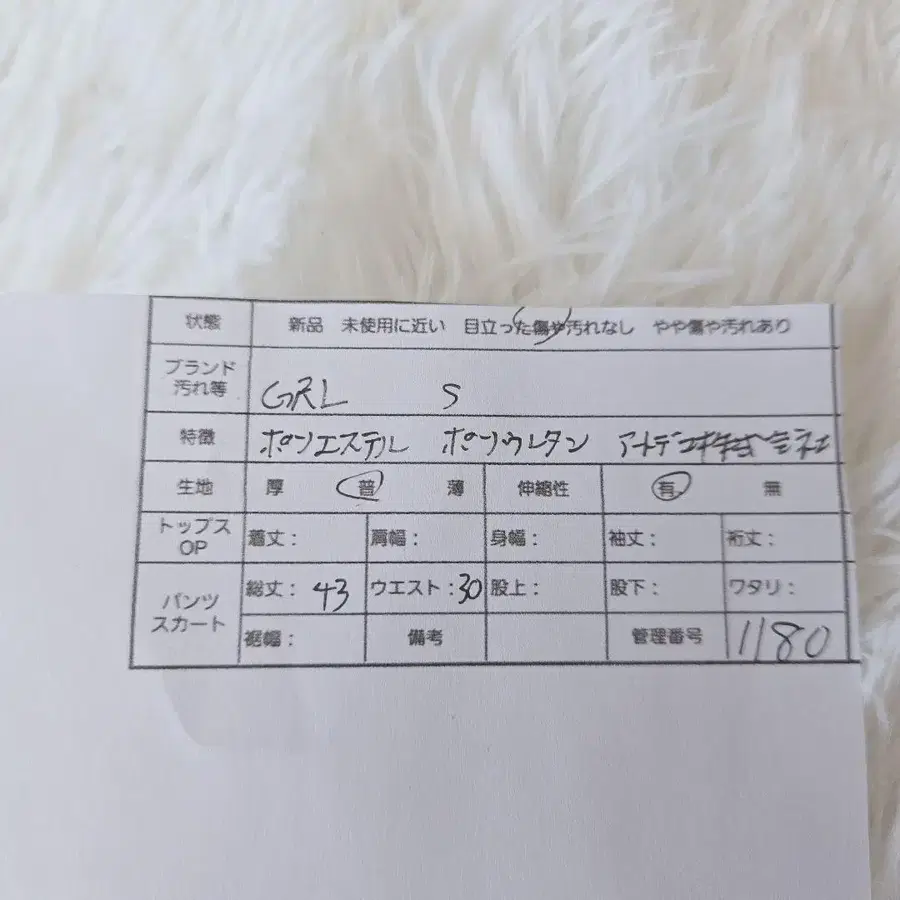 状態 新品 未使用に近い 目立った傷や汚れなし やや傷や汚れあり
ブランド
汚れ等 GRL S
特徴 ポリエステル ポリウレタン 株式会社
生地 厚 普 薄 伸縮性 有 無
トップス
OP 着丈： 肩幅： 身幅： 袖丈： 裄丈：
パンツ
スカート 総丈：43 ウエスト：30 股上： 股下： ワタリ：
裾幅： 備考 管理番号 1180